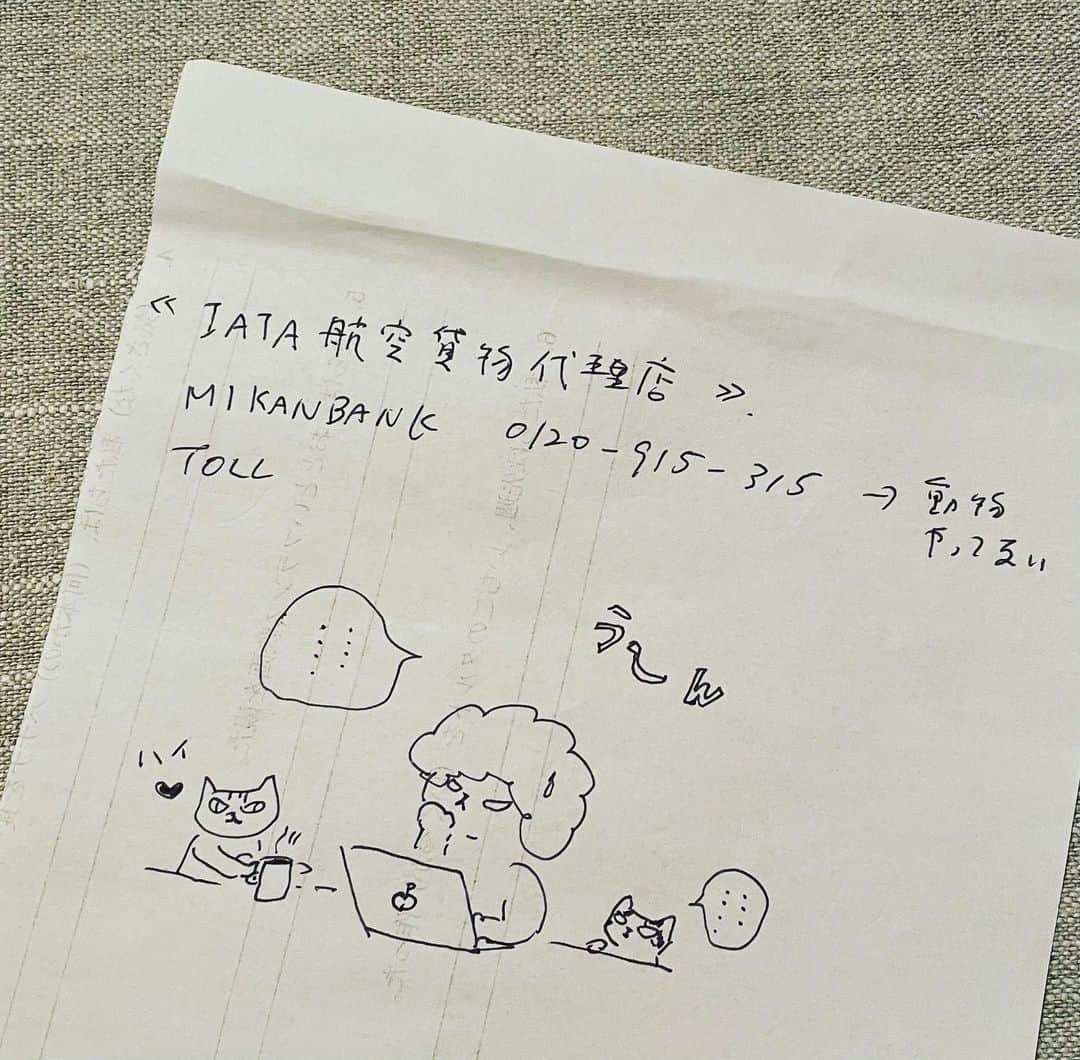 《 IATA 航空貨物代理店 》.
MIKANBANK 0120-915-315 → 動物
TOLL
うーん
ハイ